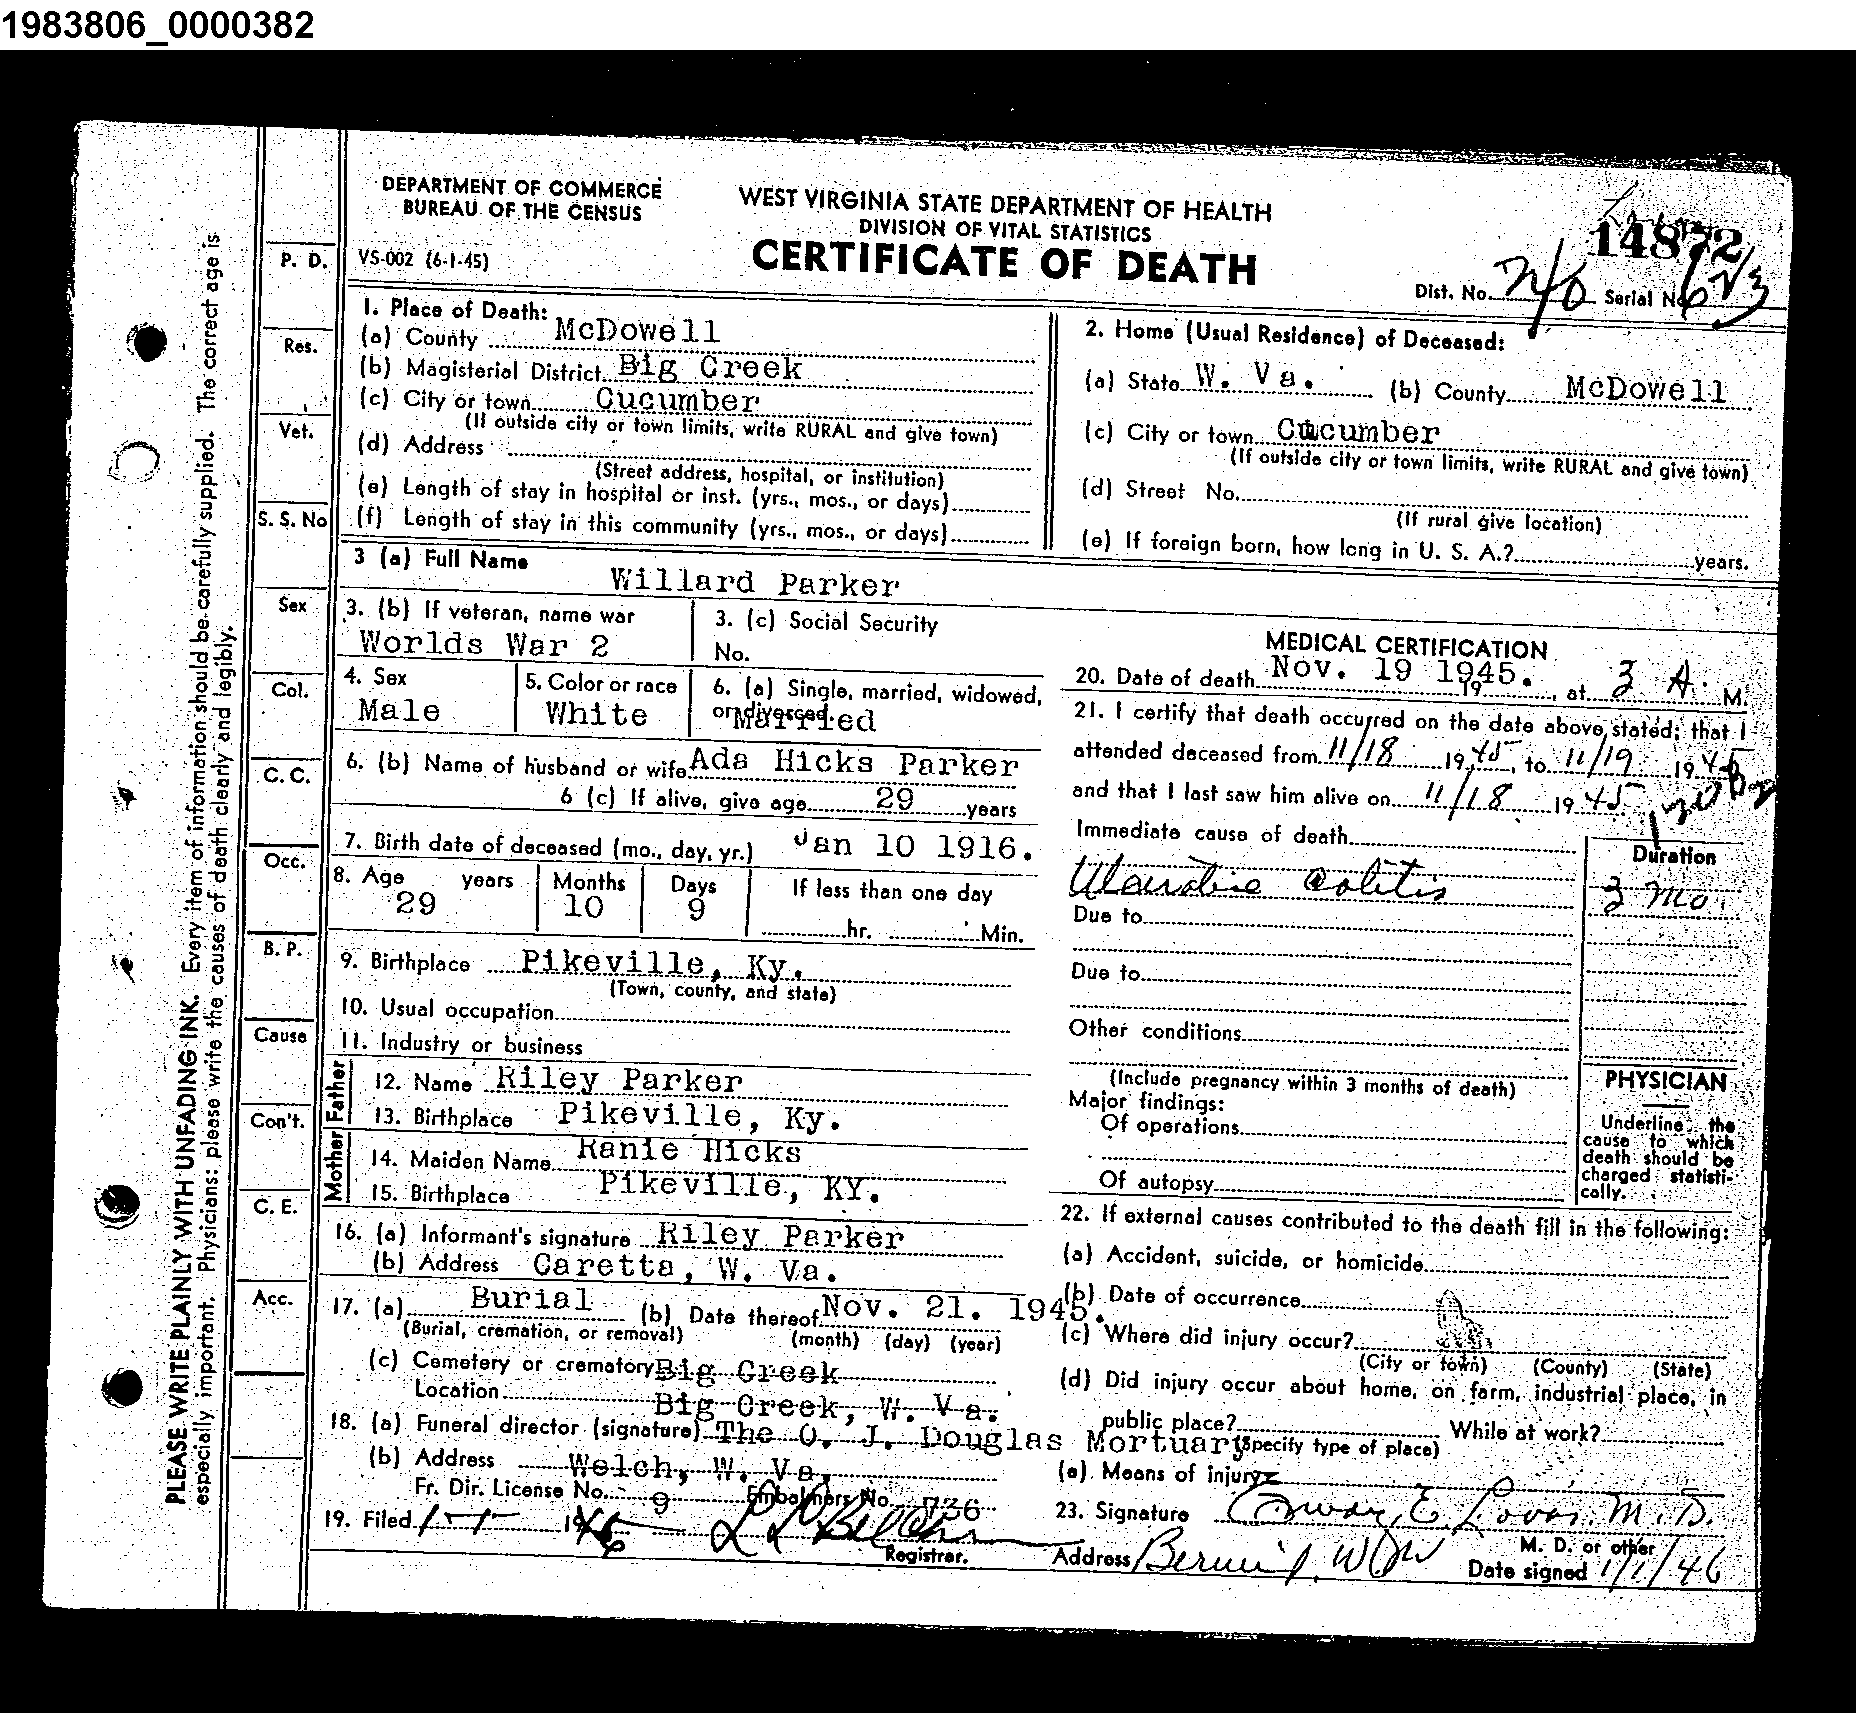 1983806_0000382
DEPARTMENT OF COMMERCE
BUREAU OF THE CENSUS
WEST VIRGINIA STATE DEPARTMENT OF HEALTH
DIVISION OF VITAL STATISTICS
CERTIFICATE OF DEATH
VS-002 (6-1-45)
14872
Dist. No. Serial No.
PLEASE WRITE PLAINLY WITH UNFADING INK. Every item of information should be carefully supplied. The correct age is
especially important. Physicians: please write the causes of death clearly and legibly.
P. D.
Res.
Vet.
S. S. No
Sex
Col.
C. C.
Occ.
B. P.
Cause
Con't.
C. E.
Acc.
1. Place of Death:
(a) County McDowell
(b) Magisterial District Big Creek
(c) City or town Cucumber
(If outside city or town limits, write RURAL and give town)
(d) Address
(Street address, hospital, or institution)
(e) Length of stay in hospital or inst. (yrs., mos., or days)
(f) Length of stay in this community (yrs., mos., or days)
2. Home (Usual Residence) of Deceased:
(a) State W. Va. (b) County McDowell
(c) City or town Cucumber
(If outside city or town limits, write RURAL and give town)
(d) Street No.
(If rural give location)
(e) If foreign born, how long in U. S. A.? years.
3 (a) Full Name Willard Parker
3. (b) If veteran, name war
Worlds War 2
3. (c) Social Security
No.
4. Sex
Male
5. Color or race
White
6. (a) Single, married, widowed,
or divorced. Married
6. (b) Name of husband or wife Ada Hicks Parker
6 (c) If alive, give age 29 years
7. Birth date of deceased (mo., day, yr.) Jan 10 1916.
8. Age years Months Days If less than one day
29 10 9
hr. Min.
9. Birthplace Pikeville, Ky.
(Town, county, and state)
10. Usual occupation
11. Industry or business
Father
12. Name Riley Parker
13. Birthplace Pikeville, Ky.
Mother
14. Maiden Name Ranie Hicks
15. Birthplace Pikeville, KY.
16. (a) Informant's signature Riley Parker
(b) Address Caretta, W. Va.
17. (a) Burial (b) Date thereof Nov. 21. 1945.
(Burial, cremation, or removal) (month) (day) (year)
(c) Cemetery or crematory Big Creek
Location Big Creek, W. Va.
18. (a) Funeral director (signature) The O. J. Douglas Mortuary
(b) Address Welch, W. Va.
Fr. Dir. License No. 9 Embalmers No. 736
19. Filed 1-1- 1946
Registrar.
MEDICAL CERTIFICATION
20. Date of death Nov. 19 1945. 19 , at 3 A. M.
21. I certify that death occurred on the date above stated; that I
attended deceased from 11/18 1945, to 11/19 1945
and that I last saw him alive on 11/18 1945
Immediate cause of death
Duration
colitis 3 mo.
Due to
Due to
Other conditions
(Include pregnancy within 3 months of death)
Major findings:
Of operations
Of autopsy
PHYSICIAN
Underline the
cause to which
death should be
charged statisti-
cally.
22. If external causes contributed to the death fill in the following:
(a) Accident, suicide, or homicide
(b) Date of occurrence
(c) Where did injury occur?
(City or town) (County) (State)
(d) Did injury occur about home, on farm, industrial place, in
public place? While at work?
(Specify type of place)
(e) Means of injury
23. Signature E. M.D.
M. D. or other
Address Date signed 1/1/46